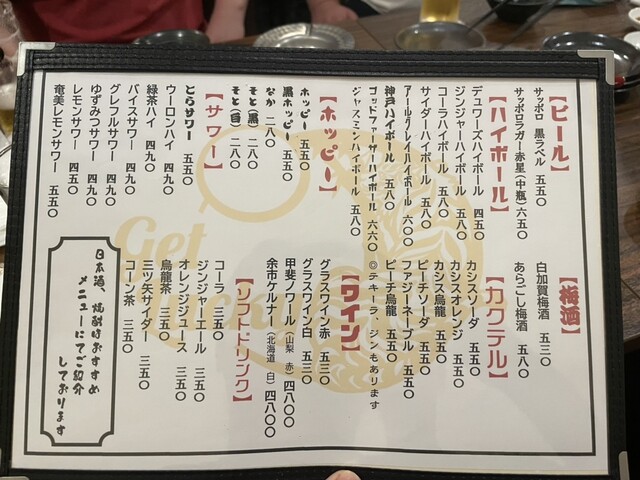 【ビール】
サッポロ 黒ラベル 五五〇
サッポロラガー赤星(中瓶) 六五〇
【ハイボール】
デュワーズハイボール 四五〇
ジンジャーハイボール 五八〇
コーラハイボール 五八〇
サイダーハイボール 五八〇
アールグレイハイボール 六〇〇
神戸ハイボール 五八〇
ゴッドファーザーハイボール 六六〇
ジャスミンハイボール 五八〇
【ホッピー】
ホッピー 五五〇
黒ホッピー 五五〇
なか 二八〇
そと(黒) 二八〇
そと(白) 二八〇
【サワー】
とらサワー 五五〇
ウーロンハイ 四九〇
緑茶ハイ 四九〇
バイスサワー 四九〇
グレフルサワー 四九〇
ゆずみつサワー 四九〇
レモンサワー 四五〇
奄美レモンサワー 五五〇
【梅酒】
白加賀梅酒 五三〇
あらごし梅酒 五八〇
【カクテル】
カシスソーダ 五五〇
カシスオレンジ 五五〇
カシス烏龍 五五〇
ピーチソーダ 五五〇
ファジーネーブル 五五〇
ピーチ烏龍 五五〇
◎テキーラ、ジンもあります
【ワイン】
グラスワイン赤 五三〇
グラスワイン白 五三〇
甲斐ノワール(山梨 赤) 四八〇〇
余市ケルナー(北海道 白) 四八〇〇
【ソフトドリンク】
コーラ 三五〇
ジンジャーエール 三五〇
オレンジジュース 三五〇
烏龍茶 三五〇
三ツ矢サイダー 三五〇
コーン茶 三五〇
日本酒、焼酎はおすすめ
メニューにてご紹介
しております
Get
Lucky